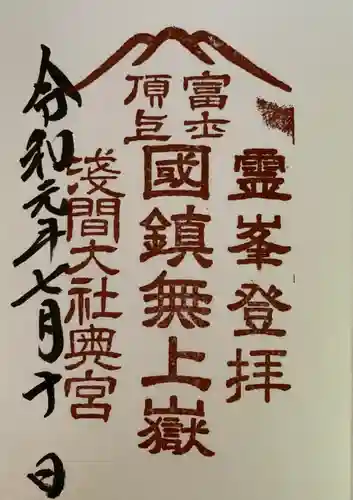 霊峯登拝
富士
頂上
國鎮無上嶽
浅間大社奥宮
令和元年七月十日